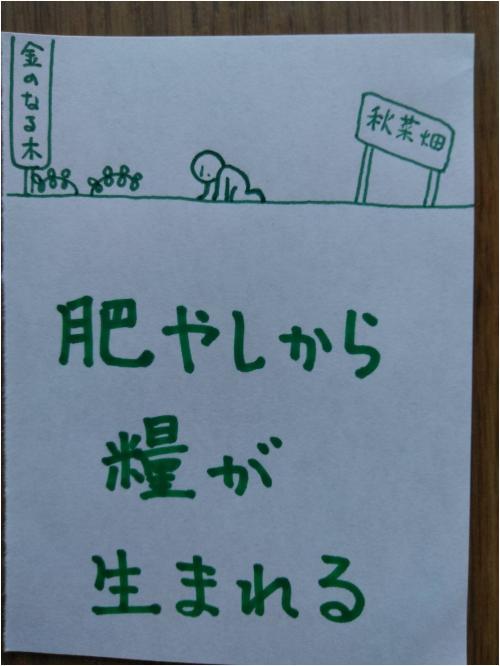 金のなる木
秋菜畑
肥やしから
糧が
生まれる